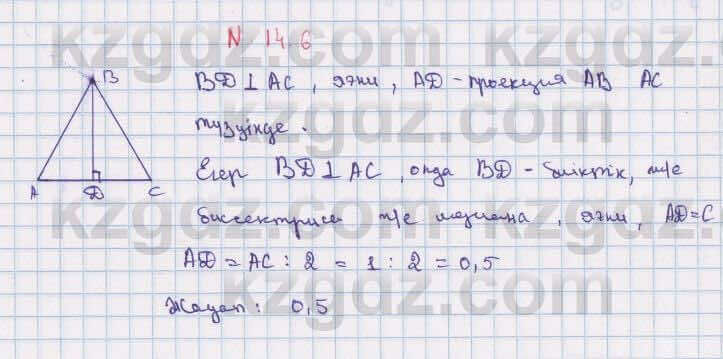 N 14.6
BD ⊥ AC , яғни , AD – проекция AB AC
түзуінде .
Егер BD ⊥ AC , онда BD – биіктік, ж/е
биссектриса ж/е медиана , яғни , AD = C
AD = AC : 2 = 1 : 2 = 0,5
Жауап : 0,5
B
A
D
C
kzgdz.com